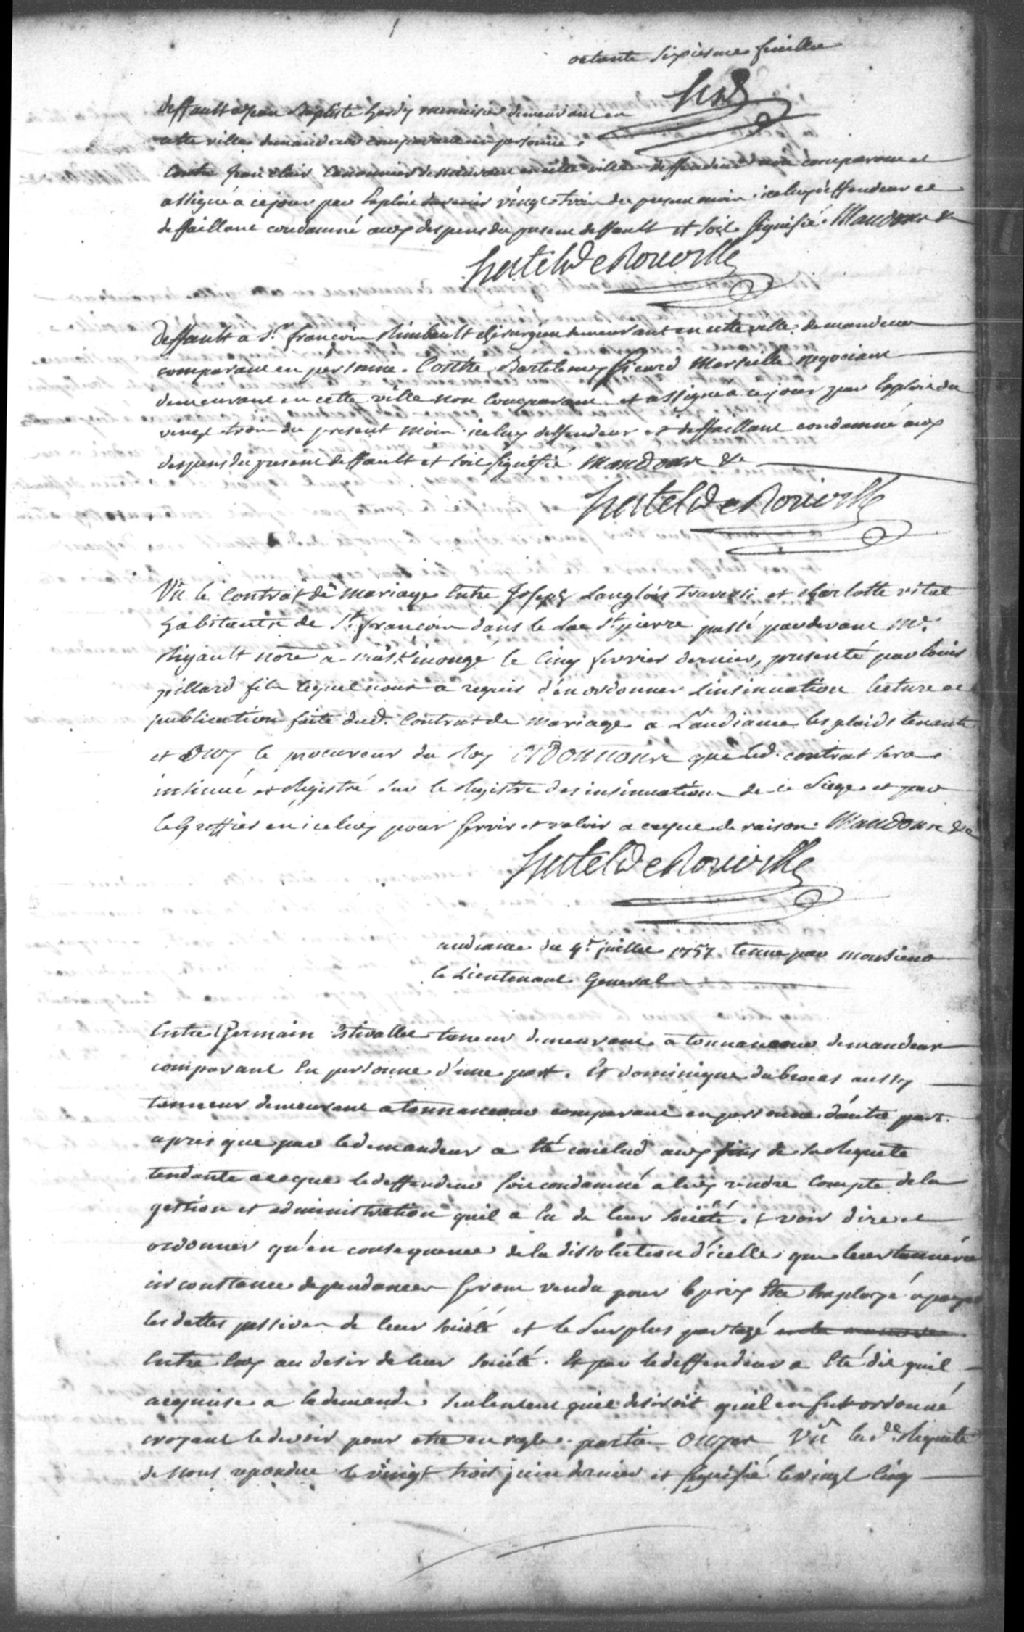 octante sixieme feuillet
HsD
Deffault a Jean Baptiste hardy menuisier demeurant en
cette ville demandeur comparant en personne,
Contre Jean cordonnier demeurant en cette ville deffendeur non comparant et
assigné a ce jour par Exploit du vingt trois du present mois iceluy deffendeur et
deffaillant condamné aux despens du present deffault et soit signifié Mandons &
hertel De Rouville
Deffault a Sr. françois Rimbault chirurgien demeurant en cette ville demandeur
comparant en personne. Contre Bartelemy ficard Marseille negociant
demeurant en cette ville non Comparant et assigné a ce jour par Exploit du
vingt trois du present mois iceluy deffendeur et deffaillant condamné aux
despens du present deffault et soit signifié Mandons &a
hertel De Rouville
Vû le Contrat de Mariage Entre Joseph Langlois traversi et charlotte vital
habitants de St. françois dans le Lac St. pierre passé pardevant Me.
Rigault Nore a maskinongé le Cinq fevrier dernier, presenté par louis
pillard fils lequel nous a requis d'en ordonner Linsinuation lecture et
publication faite dud. Contrat de Mariage a L'audiance les plaids tenants
et Ouy le procureur du Roy Ordonnons que led. contrat sera
insinué et Registré sur le Registre des insinuations de ce Siege et par
le Greffier en iceluy pour servir et valoir a ce que de raison Mandons &a
hertel De Rouville
audiance du 4e. juillet 1757. tenue par Monsieur
le Lieutenant General
Entre Germain Estivallet tanneur demeurant a tonnancour demandeur
comparant En personne d'une part. Et dominique dubeau aussy
tanneur demeurant a tonnancour comparant en personne d'autre part.
apres que par le demandeur a Eté conclud aux fins de sa Requete
tendante a ce que le deffendeur soit condamné a luy rendre Compte de la
gestion et administration quil a Eu de leur société, et voir dire et
ordonner qu'en consequence de la dissolution d'icelle que leur tannerie
circonstance dependances seront vendu pour le prix Etre Employé a payer
les dettes passives de leur société et le Surplus partagé
Entre Eux au desir de leur société. Et par le deffendeur a Eté dit quil
acquiesce a la demande seulement quil desiroit quil en fut ordonné
croyant le devoir pour etre en regle. parties Ouyes Vû lade. Requete
de nous repondue le vingt trois juin dernier et signifié le vingt cinq